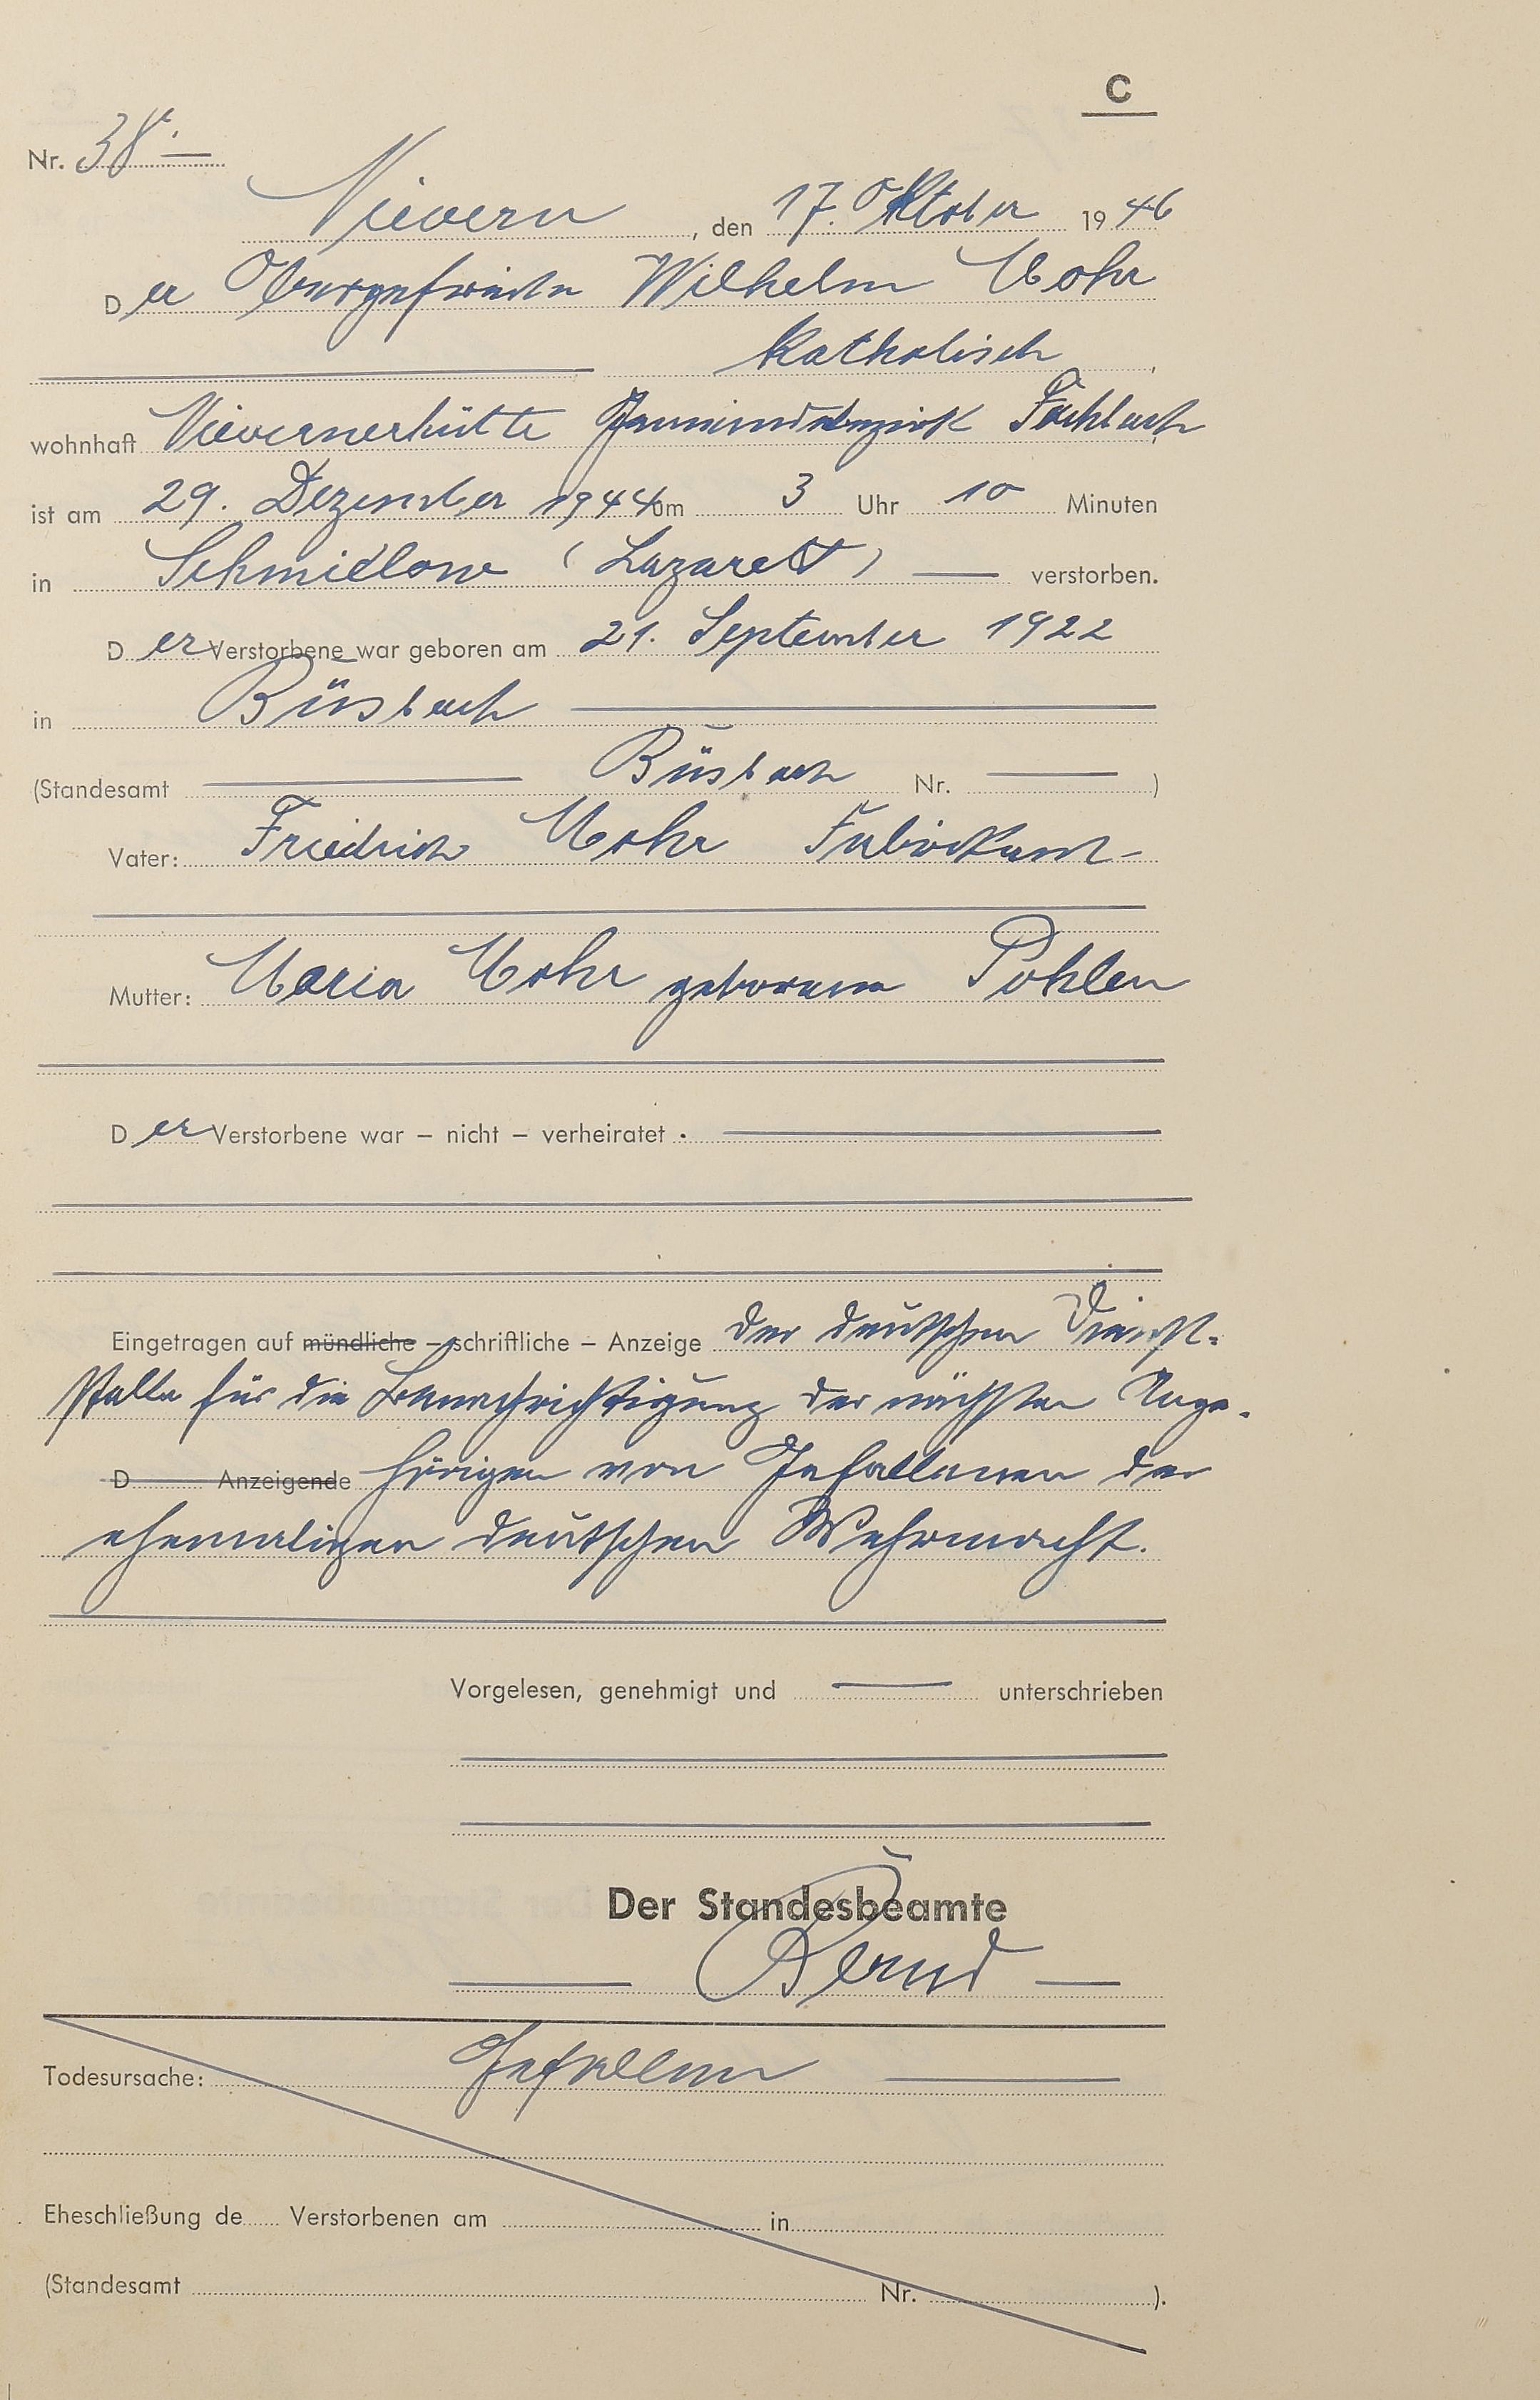 C
Nr. 38. —
Nievern, den 17. Oktober 1946
Der Obergefreite Wilhelm Mohr
katholisch,
wohnhaft Nievernerhütte Gemeindebezirk Fachbach,
ist am 29. Dezember 1944 um 3 Uhr 10 Minuten
in Schmidlow (Lazarett) — verstorben.
Der Verstorbene war geboren am 21. September 1922
in Büsbach
(Standesamt — Büsbach Nr. — )
Vater: Friedrich Mohr Fabrikant
Mutter: Maria Mohr geborene Pohlen
Der Verstorbene war – nicht – verheiratet.
Eingetragen auf mündliche – schriftliche – Anzeige der deutschen Dienst-
stelle für die Benachrichtigung der nächsten Ange-
D Anzeigende hörigen von Gefallenen der
ehemaligen deutschen Wehrmacht.
Vorgelesen, genehmigt und — unterschrieben
Der Standesbeamte
— Bernd —
Todesursache: Gefallen —
Eheschließung de Verstorbenen am in
(Standesamt Nr. ).